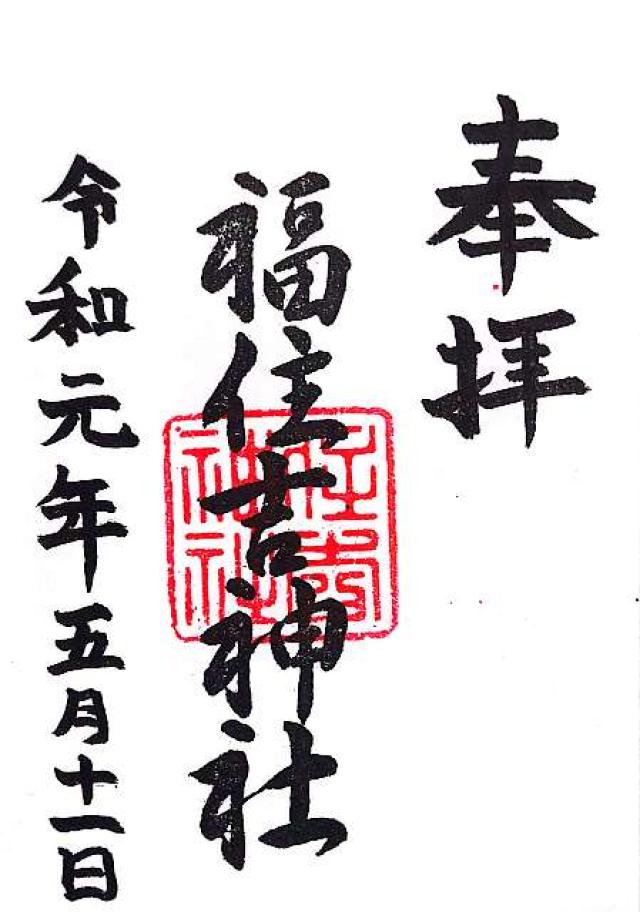 奉拝
福住吉神社
住吉
神社
令和元年五月十一日